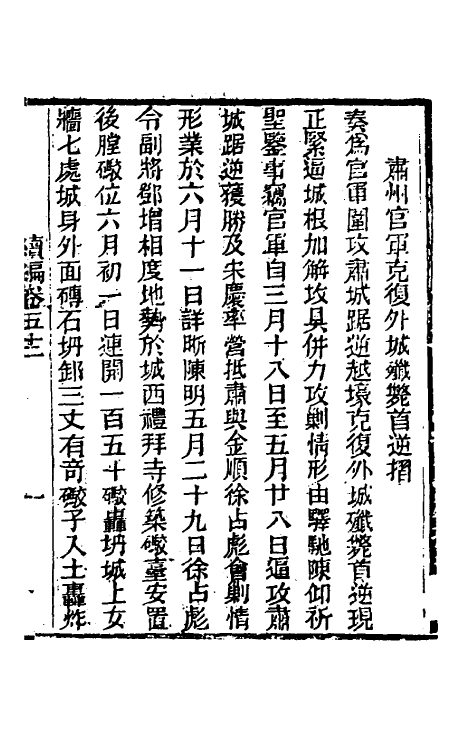 肅州官軍克復外城殲斃首逆摺
奏爲官軍圍攻肅城踞逆越壕克復外城殲斃首逆現
正緊逼城根加解攻具併力攻剿情形由驛馳陳仰祈
聖鑒事竊官軍自三月十八日至五月廿八日逼攻肅
城踞逆獲勝及朱慶率營抵肅與金順徐占彪會剿情
形業於六月十一日詳晰陳明五月二十九日徐占彪
令副將鄧增相度地勢於城西禮拜寺修築礮臺安置
後膛礮位六月初一日連開一百五十礮轟坍城上女
牆七處城身外面磚石坍卸三丈有奇礮子入土轟炸
續編卷五十二
一